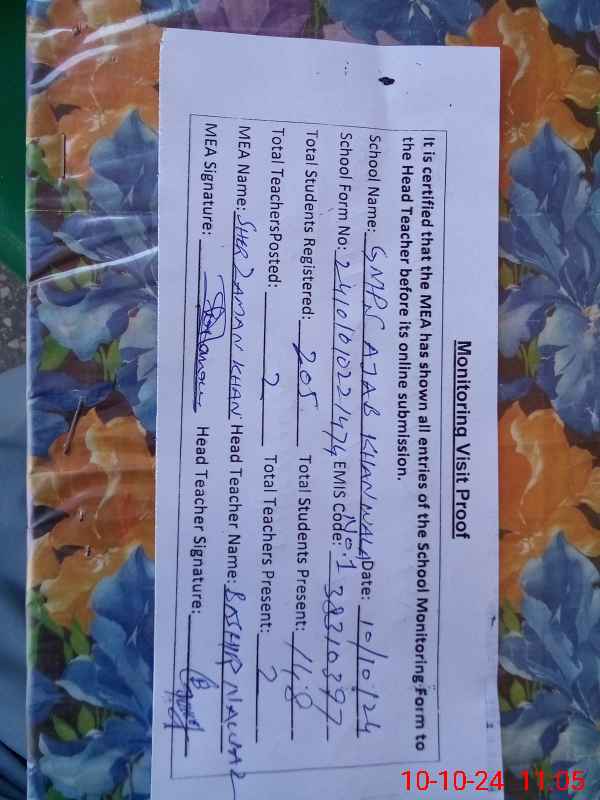 Monitoring Visit Proof
It is certified that the MEA has shown all entries of the School Monitoring Form to
the Head Teacher before its online submission.
School Name: GMPS AJAB KHAN WALA Date: 10/10/24
No:1
School Form No: EMIS Code: 38310397
Total Students Registered: 205 Total Students Present: 148
Total TeachersPosted: 2 Total Teachers Present: 2
MEA Name: SHER ZAMAN KHAN Head Teacher Name: BASHIR NAWAZ
MEA Signature: Head Teacher Signature:
10-10-24 11:05